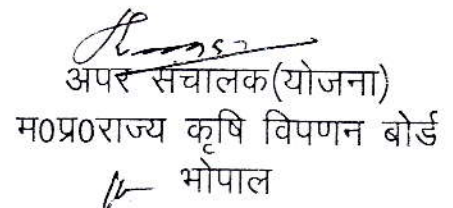 अपर संचालक(योजना)
म0प्र0राज्य कृषि विपणन बोर्ड
भोपाल